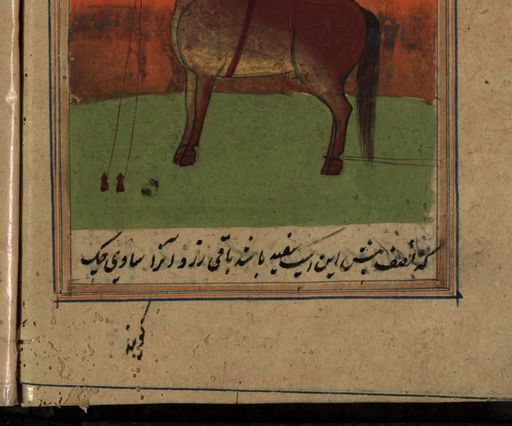 که نصف پیش این اسپ سفید باشد باقی زرد و آنرا ساوی جنک
کویند